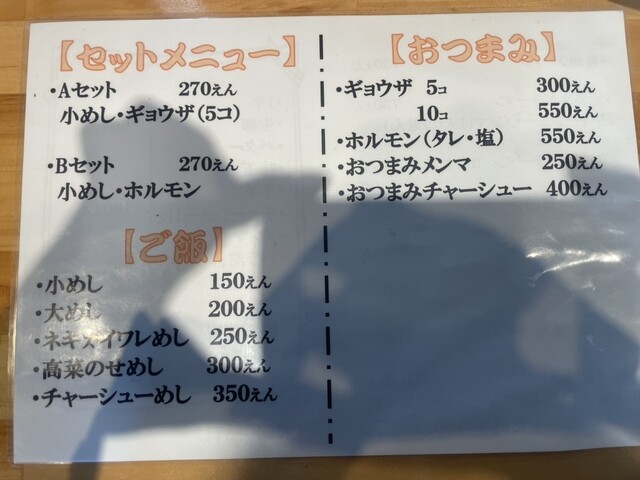 【セットメニュー】
・Aセット 270えん
小めし・ギョウザ(5コ)
・Bセット 270えん
小めし・ホルモン
【ご飯】
・小めし 150えん
・大めし 200えん
・ネギメイワレめし 250えん
・高菜のせめし 300えん
・チャーシューめし 350えん
【おつまみ】
・ギョウザ 5コ 300えん
10コ 550えん
・ホルモン(タレ・塩) 550えん
・おつまみメンマ 250えん
・おつまみチャーシュー 400えん